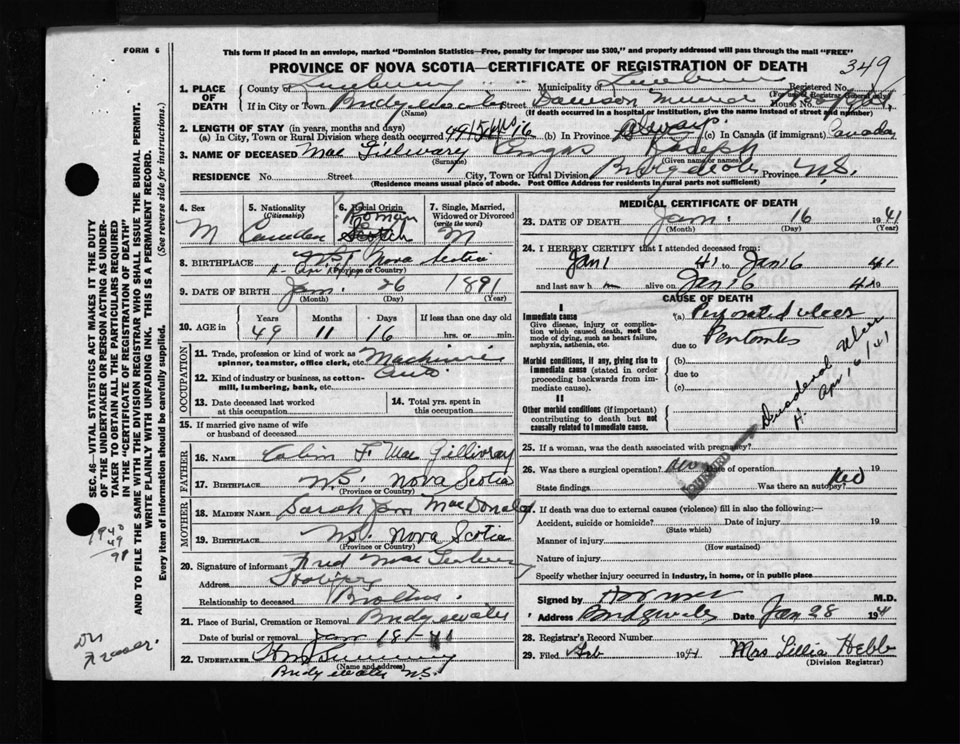 FORM 6
This form if placed in an envelope, marked "Dominion Statistics—Free, penalty for improper use $300," and properly addressed will pass through the mail "FREE"
PROVINCE OF NOVA SCOTIA—CERTIFICATE OF REGISTRATION OF DEATH
349
1. PLACE OF DEATH
County of Lunenburg Municipality of Registered No.
(For use of Registrar General only)
If in City or Town Bridgewater Street Dawson Memorial House No. Hospital
(Name) (If death occurred in a hospital or institution, give the name instead of street and number)
2. LENGTH OF STAY (in years, months and days)
(a) In City, Town or Rural Division where death occurred (b) In Province always (c) In Canada (if immigrant) Canada
3. NAME OF DECEASED Mac Gillivary Angus Joseph
(Surname) (Given name or names)
RESIDENCE No. Street City, Town or Rural Division Bridgewater Province N.S.
(Residence means usual place of abode. Post Office Address for residents in rural parts not sufficient)
4. Sex
M
5. Nationality
(Citizenship)
Canadian
6. Racial Origin
Scotch
7. Single, Married, Widowed or Divorced
(write the word)
M
8. BIRTHPLACE N.S. Nova Scotia
(Province or Country)
9. DATE OF BIRTH Jan. 26 1891
(Month) (Day) (Year)
10. AGE in
Years Months Days If less than one day old
49 11 16 hrs. or min.
OCCUPATION
11. Trade, profession or kind of work as spinner, teamster, office clerk, etc. Mechanic
12. Kind of industry or business, as cotton-mill, lumbering, bank, etc. Auto
13. Date deceased last worked at this occupation
14. Total yrs. spent in this occupation
15. If married give name of wife or husband of deceased
FATHER
16. NAME Colin F. Mac Gillivray
17. BIRTHPLACE N.S. Nova Scotia
(Province or Country)
MOTHER
18. MAIDEN NAME Sarah Jane MacDonald
19. BIRTHPLACE N.S. Nova Scotia
(Province or Country)
20. Signature of informant Fred
Address
Relationship to deceased Brother
21. Place of Burial, Cremation or Removal Bridgewater
Date of burial or removal Jan 18-41
22. UNDERTAKER
(Name and address)
Bridgewater N.S.
MEDICAL CERTIFICATE OF DEATH
23. DATE OF DEATH Jan. 16 1941
(Month) (Day) (Year)
24. I HEREBY CERTIFY that I attended deceased from:
Jan 1 41 to Jan 16 41
and last saw h alive on Jan 16 41
CAUSE OF DEATH
I
Immediate cause
Give disease, injury or complication which caused death, not the mode of dying, such as heart failure, asphyxia, asthenia, etc.
(a) Perforated ulcer
due to
Morbid conditions, if any, giving rise to immediate cause (stated in order proceeding backwards from immediate cause)
(b)
due to
(c)
II
Other morbid conditions (if important) contributing to death but not causally related to immediate cause.
Duodenal Ulcer
H. Apr 16/41
25. If a woman, was the death associated with pregnancy?
26. Was there a surgical operation? Date of operation 19
State findings Was there an autopsy? No
27. If death was due to external causes (violence) fill in also the following:—
Accident, suicide or homicide? Date of injury 19
(State which)
Manner of injury
(How sustained)
Nature of injury
Specify whether injury occurred in industry, in home, or in public place
Signed by M.D.
Address Bridgewater Date Jan 28 194
28. Registrar's Record Number
29. Filed Feb 1941 Mrs Lillia Hebb
(Division Registrar)
SEC. 46—VITAL STATISTICS ACT MAKES IT THE DUTY OF THE UNDERTAKER OR PERSON ACTING AS UNDERTAKER TO OBTAIN ALL THE PARTICULARS REQUIRED IN THE "CERTIFICATE OF REGISTRATION OF DEATH" AND TO FILE THE SAME WITH THE DIVISION REGISTRAR WHO SHALL ISSUE THE BURIAL PERMIT.
WRITE PLAINLY WITH UNFADING INK. THIS IS A PERMANENT RECORD.
Every item of information should be carefully supplied. (See reverse side for instructions.)
1940
49
91
Dr
Fraser.